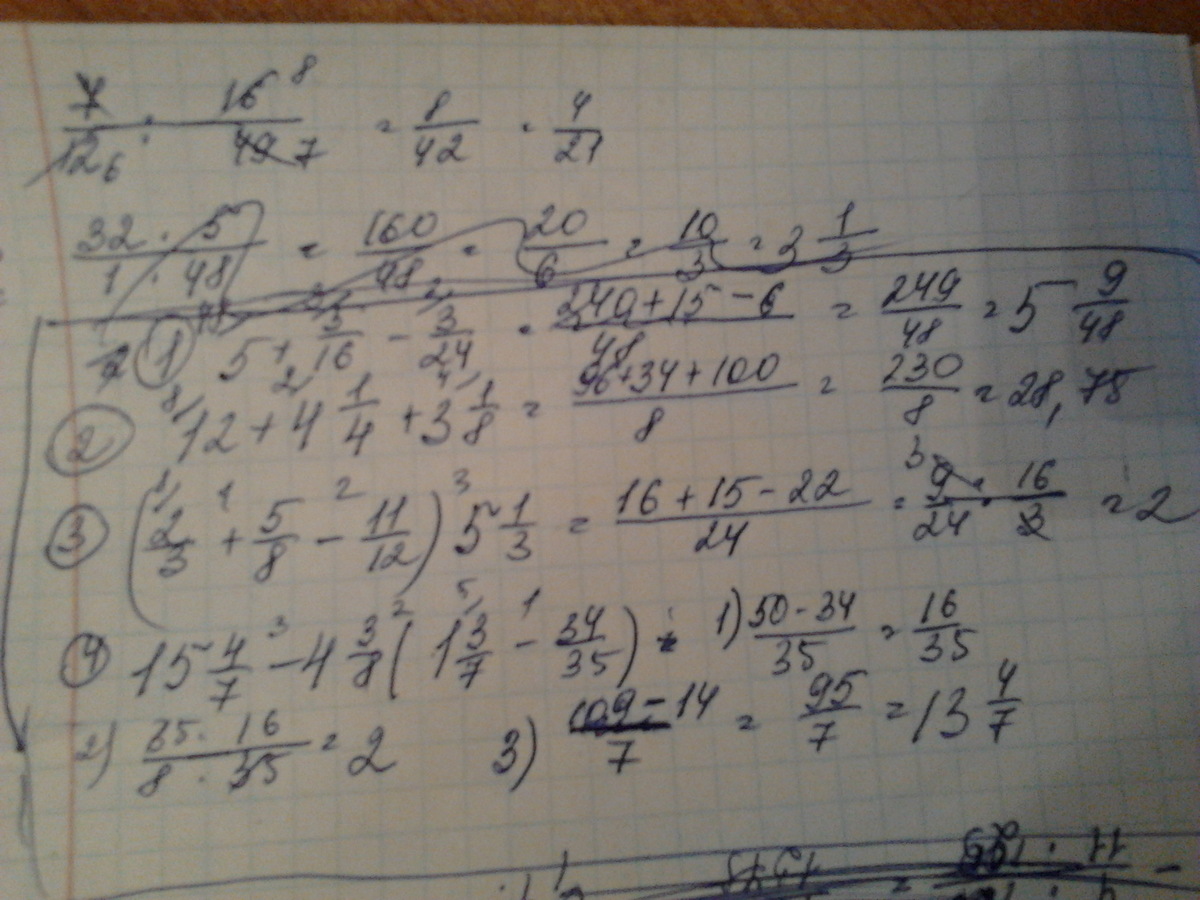 7/12 6 : 16 8/49 7 = 8/42 = 4/21
32 · 5/1 · 48 = 160/48 = 20/6 = 10/3 = 3 1/3
① 5 + 5/16 - 3/24 = 240+15-6/48 = 249/48 = 5 9/48
② 12 + 4 1/4 + 3 1/8 = 96+34+100/8 = 230/8 = 28,75
③ (2/3 + 5/8 - 11/12) 5 1/3 = 16+15-22/24 = 9/24 · 16/3 = 2
④ 15 4/7 - 4 3/8 (1 3/7 - 34/35) = 1) 50-34/35 = 16/35
2) 35 · 16/8 · 35 = 2 3) 109-14/7 = 95/7 = 13 4/7